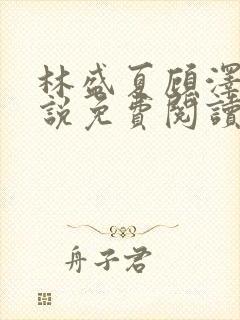 林盛夏顾泽
說免費閱讀
舟子君